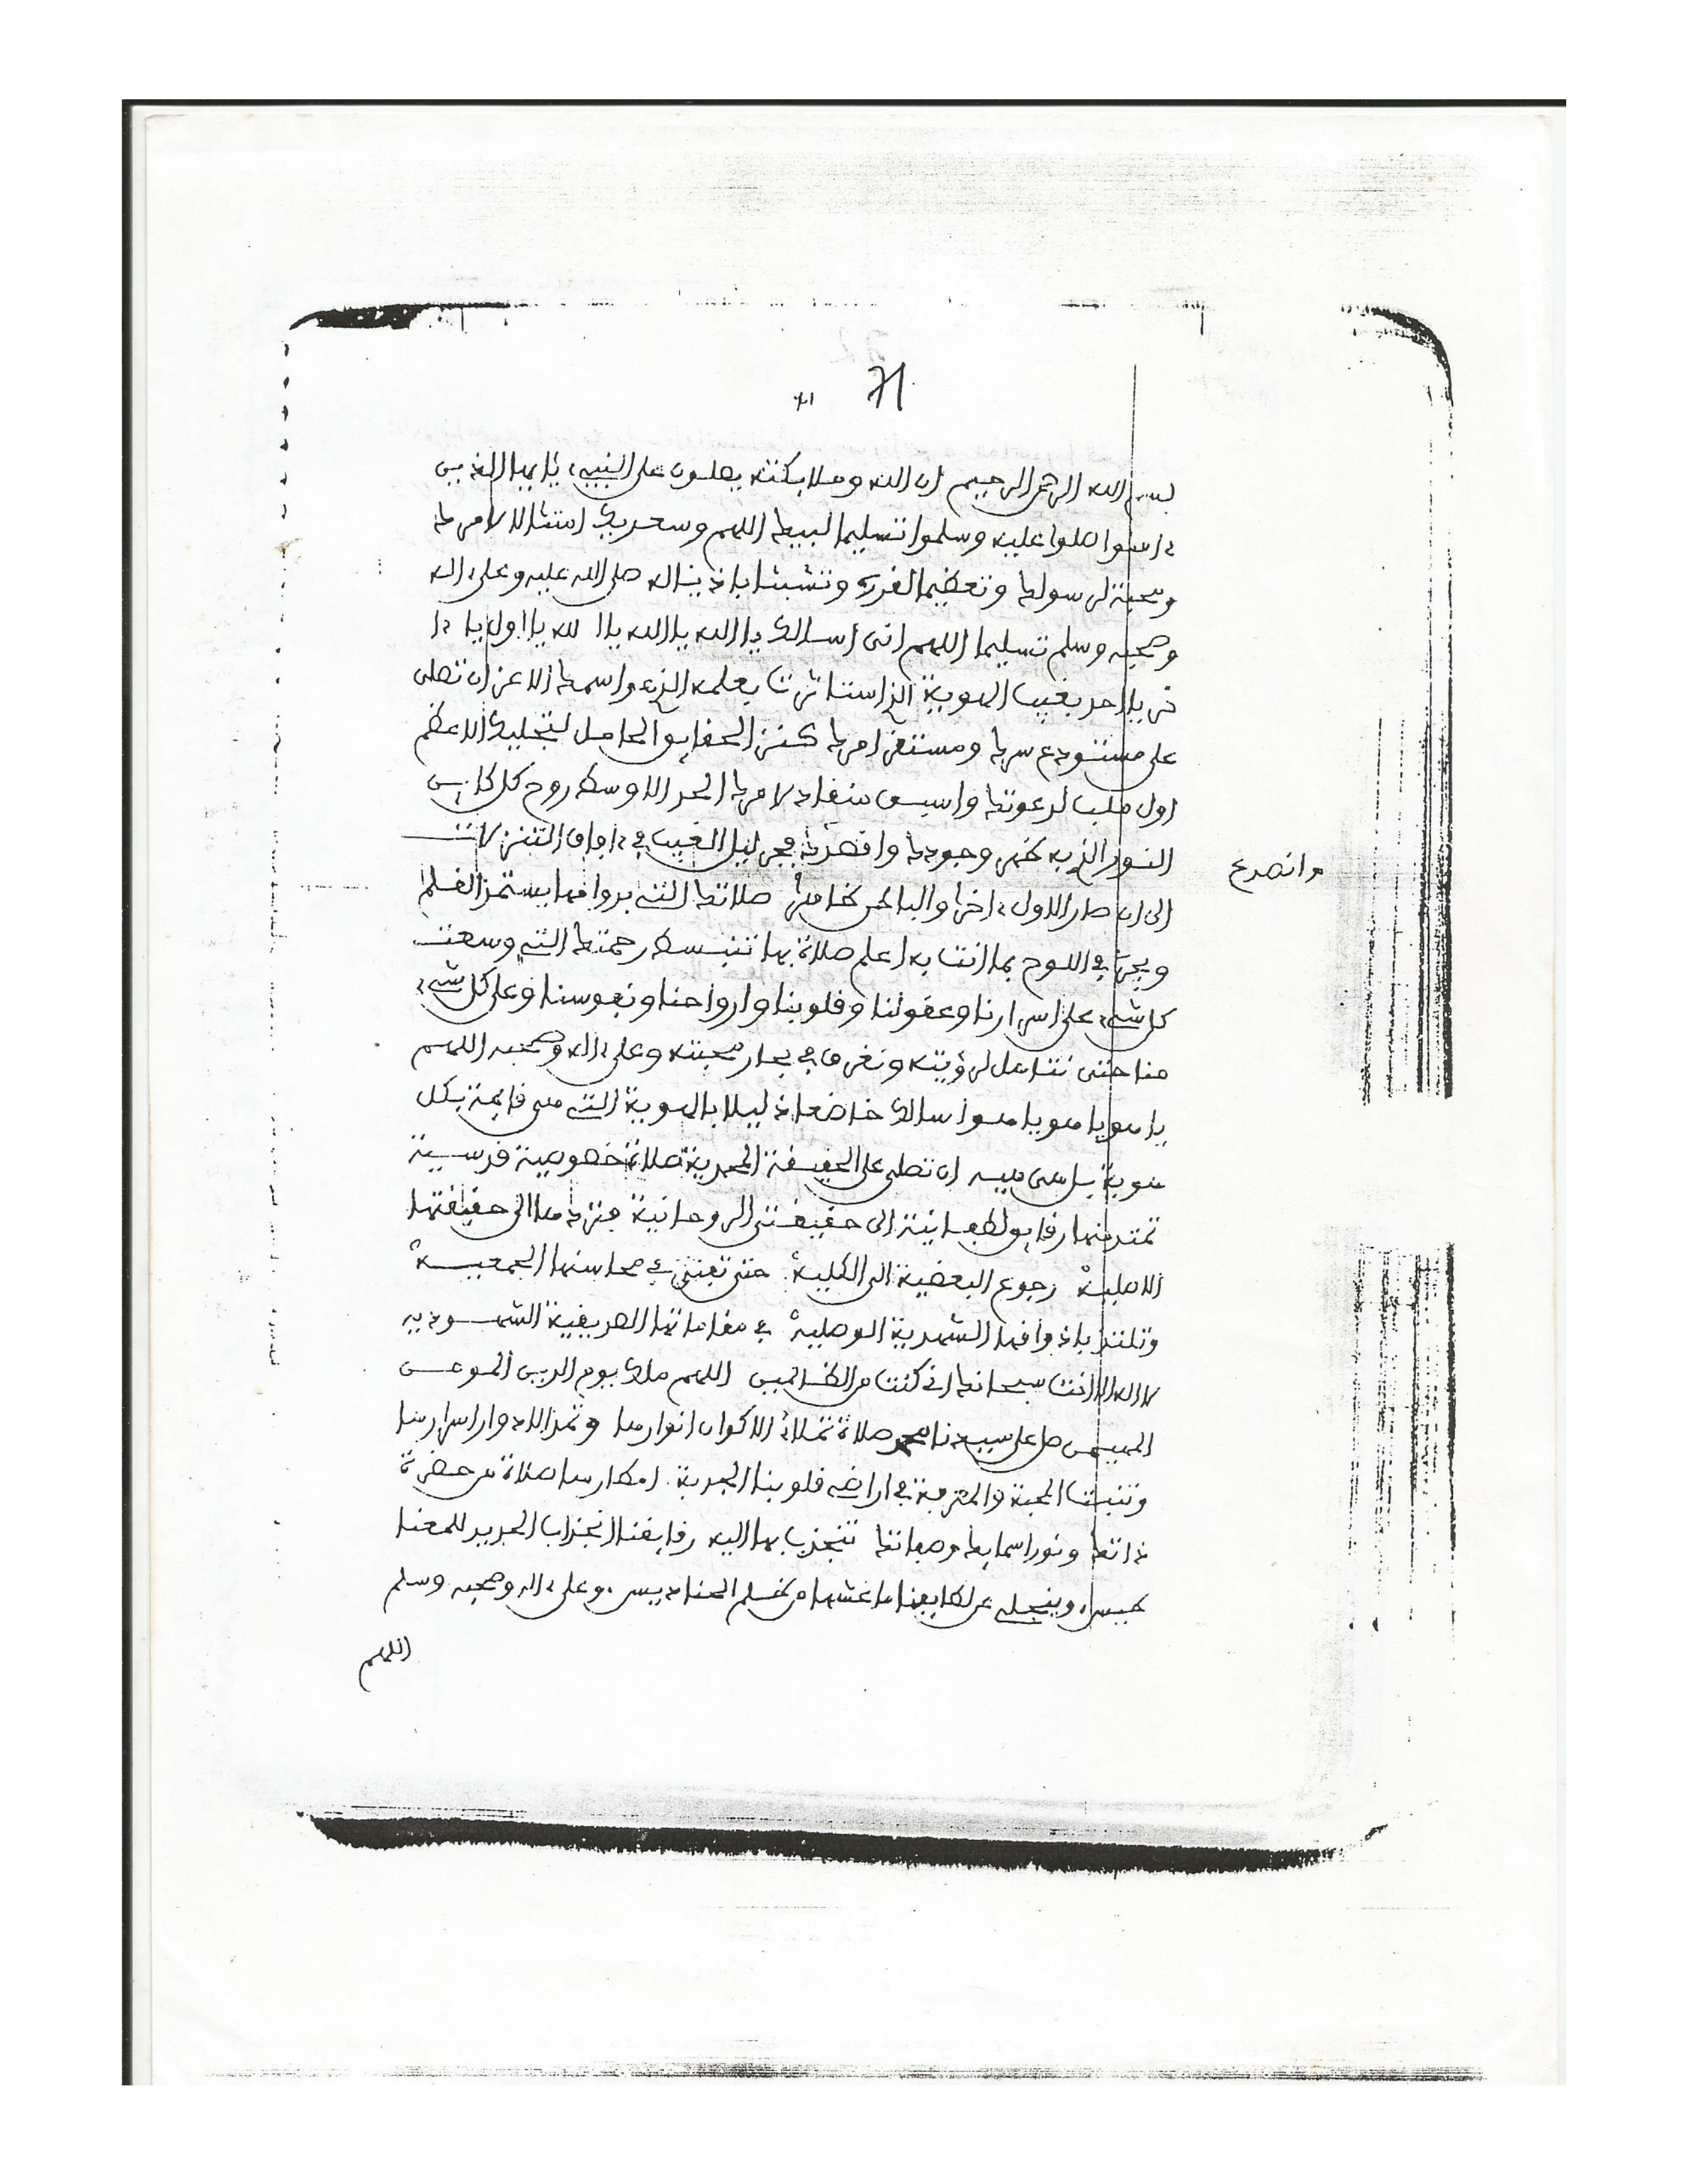 71
بسم الله الرحمن الرحيم ان الله وملايكته يصلون على النبيء يايها الذين
ءامنوا صلوا عليه وسلموا تسليما لبيك اللهم وسعديك امتثالا لامرك
ومحبة لرسولك وتعظيما لقدره وتشبثا باذياله صلى الله عليه وعلى اله
وصحبه وسلم تسليما اللهم اني اسالك يا الله يا الله يا الله يا اول يا ءا
خر يا احد بغيب الهوية الذي استاثرت بعلمه واسمك الاعز ان تصلي
على مستودع سرك ومستقر امرك كنز الحقايق الحامل لتجليك الاعظم
اول ملب لدعوتك واسبق منقاد لامرك الحد الاوسط روح كل كاين
النور الذي به ظهر وجودك وانصدع فجر ليل الغيب في ءافاق التنزلات
وانصدع
الى ان صار الاول ءاخرا والباطن ظاهرا صلاتك التي بدوامها يستمد القلم
ويجري في اللوح بما انت به اعلم صلاة بها تنبسط رحمتك التي وسعت
كل شيء على اسرارنا وعقولنا وقلوبنا وارواحنا ونفوسنا وعلى كل شيء
منا حتى نتاهل لرؤيته ونغرق في بحار محبته وعلى ءاله وصحبه اللهم
يا هو يا هو يا هو اسالك خاضعا ذليلا بالهوية التي هي قايمة بكل
هوية بل هي هيه ان تصلي على الحقيقة المحمدية صلاة خصوصية قدسية
تمتد منها رقايق لطفانية الى حقيقتي الروحانية فتردها الى حقيقتها
الاصلية رجوع البعضية الى الكلية حتى تفنى في محاسنها الجمعية
وتلتذ باذواقها الشهدية الوصلية في مقاماتها الصريفية الشهودية
لا اله الا انت سبحانك اني كنت من الظالمين اللهم ملك يوم الدين المومن
المهيمن صل على سيدنا محمد صلاة تملا الاكوان انوارها وتمد الادوار اسرارها
وتنبت المحبة والمعرفة في اراضي قلوبنا الجدبة امطارها صلاة من حضرة
ذاتك ونور اسمايك وصفاتك تنجذب بها اليه رقايقنا انجذاب الحديد للمغنا
طيس، وينجلي عن لطايفنا ما غشها من ظلم الحناديس، وعلى ءاله وصحبه وسلم
اللهم